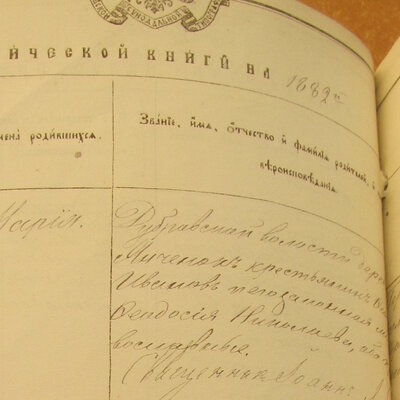 СѴНОДАЛЬНОЙ
ИЧЕСКОЙ КНИГИ НА 1882й
мена родившихся.
Званіе, имя, отчество и фамилія родителей, и
вѣроисповѣданія.
Марія.
Дубравской волости дерев
крестьянинъ
Ивановъ и законная
Ѳеодосія Николаева, оба
вославные.
Священникъ Іоаннъ